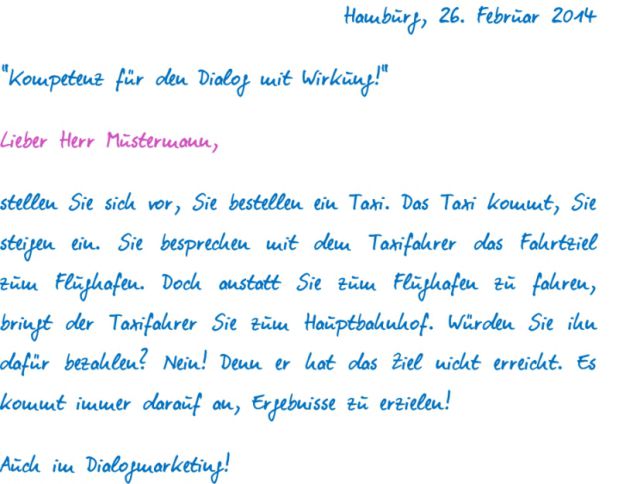 Hamburg, 26. Februar 2014
"Kompetenz für den Dialog mit Wirkung!"
Lieber Herr Mustermann,
stellen Sie sich vor, Sie bestellen ein Taxi. Das Taxi kommt, Sie
steigen ein. Sie besprechen mit dem Taxifahrer das Fahrtziel
zum Flughafen. Doch anstatt Sie zum Flughafen zu fahren,
bringt der Taxifahrer Sie zum Hauptbahnhof. Würden Sie ihn
dafür bezahlen? Nein! Denn er hat das Ziel nicht erreicht. Es
kommt immer darauf an, Ergebnisse zu erzielen!
Auch im Dialogmarketing!